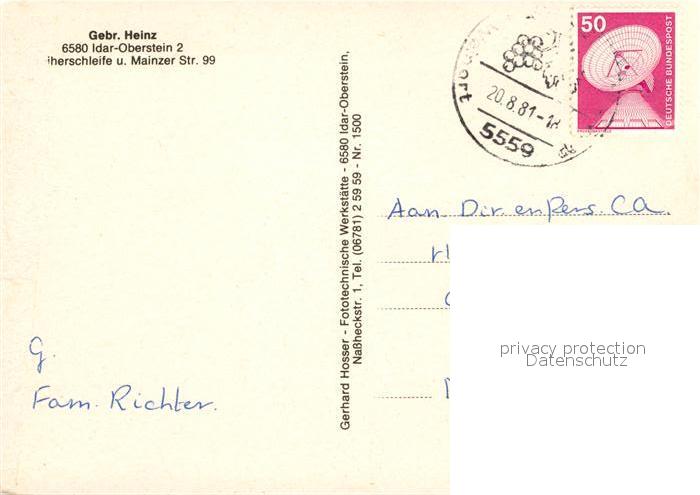 Gebr. Heinz
6580 Idar-Oberstein 2
herschleife u. Mainzer Str. 99
Gerhard Hosser - Fototechnische Werkstätte - 6580 Idar-Oberstein,
Naßheckstr. 1, Tel. (06781) 2 59 59 - Nr. 1500
20.8.81-18
5559
50
DEUTSCHE BUNDESPOST
Aan Dir. en Pers. CA.
privacy protection
Datenschutz
G.
Fam. Richter.